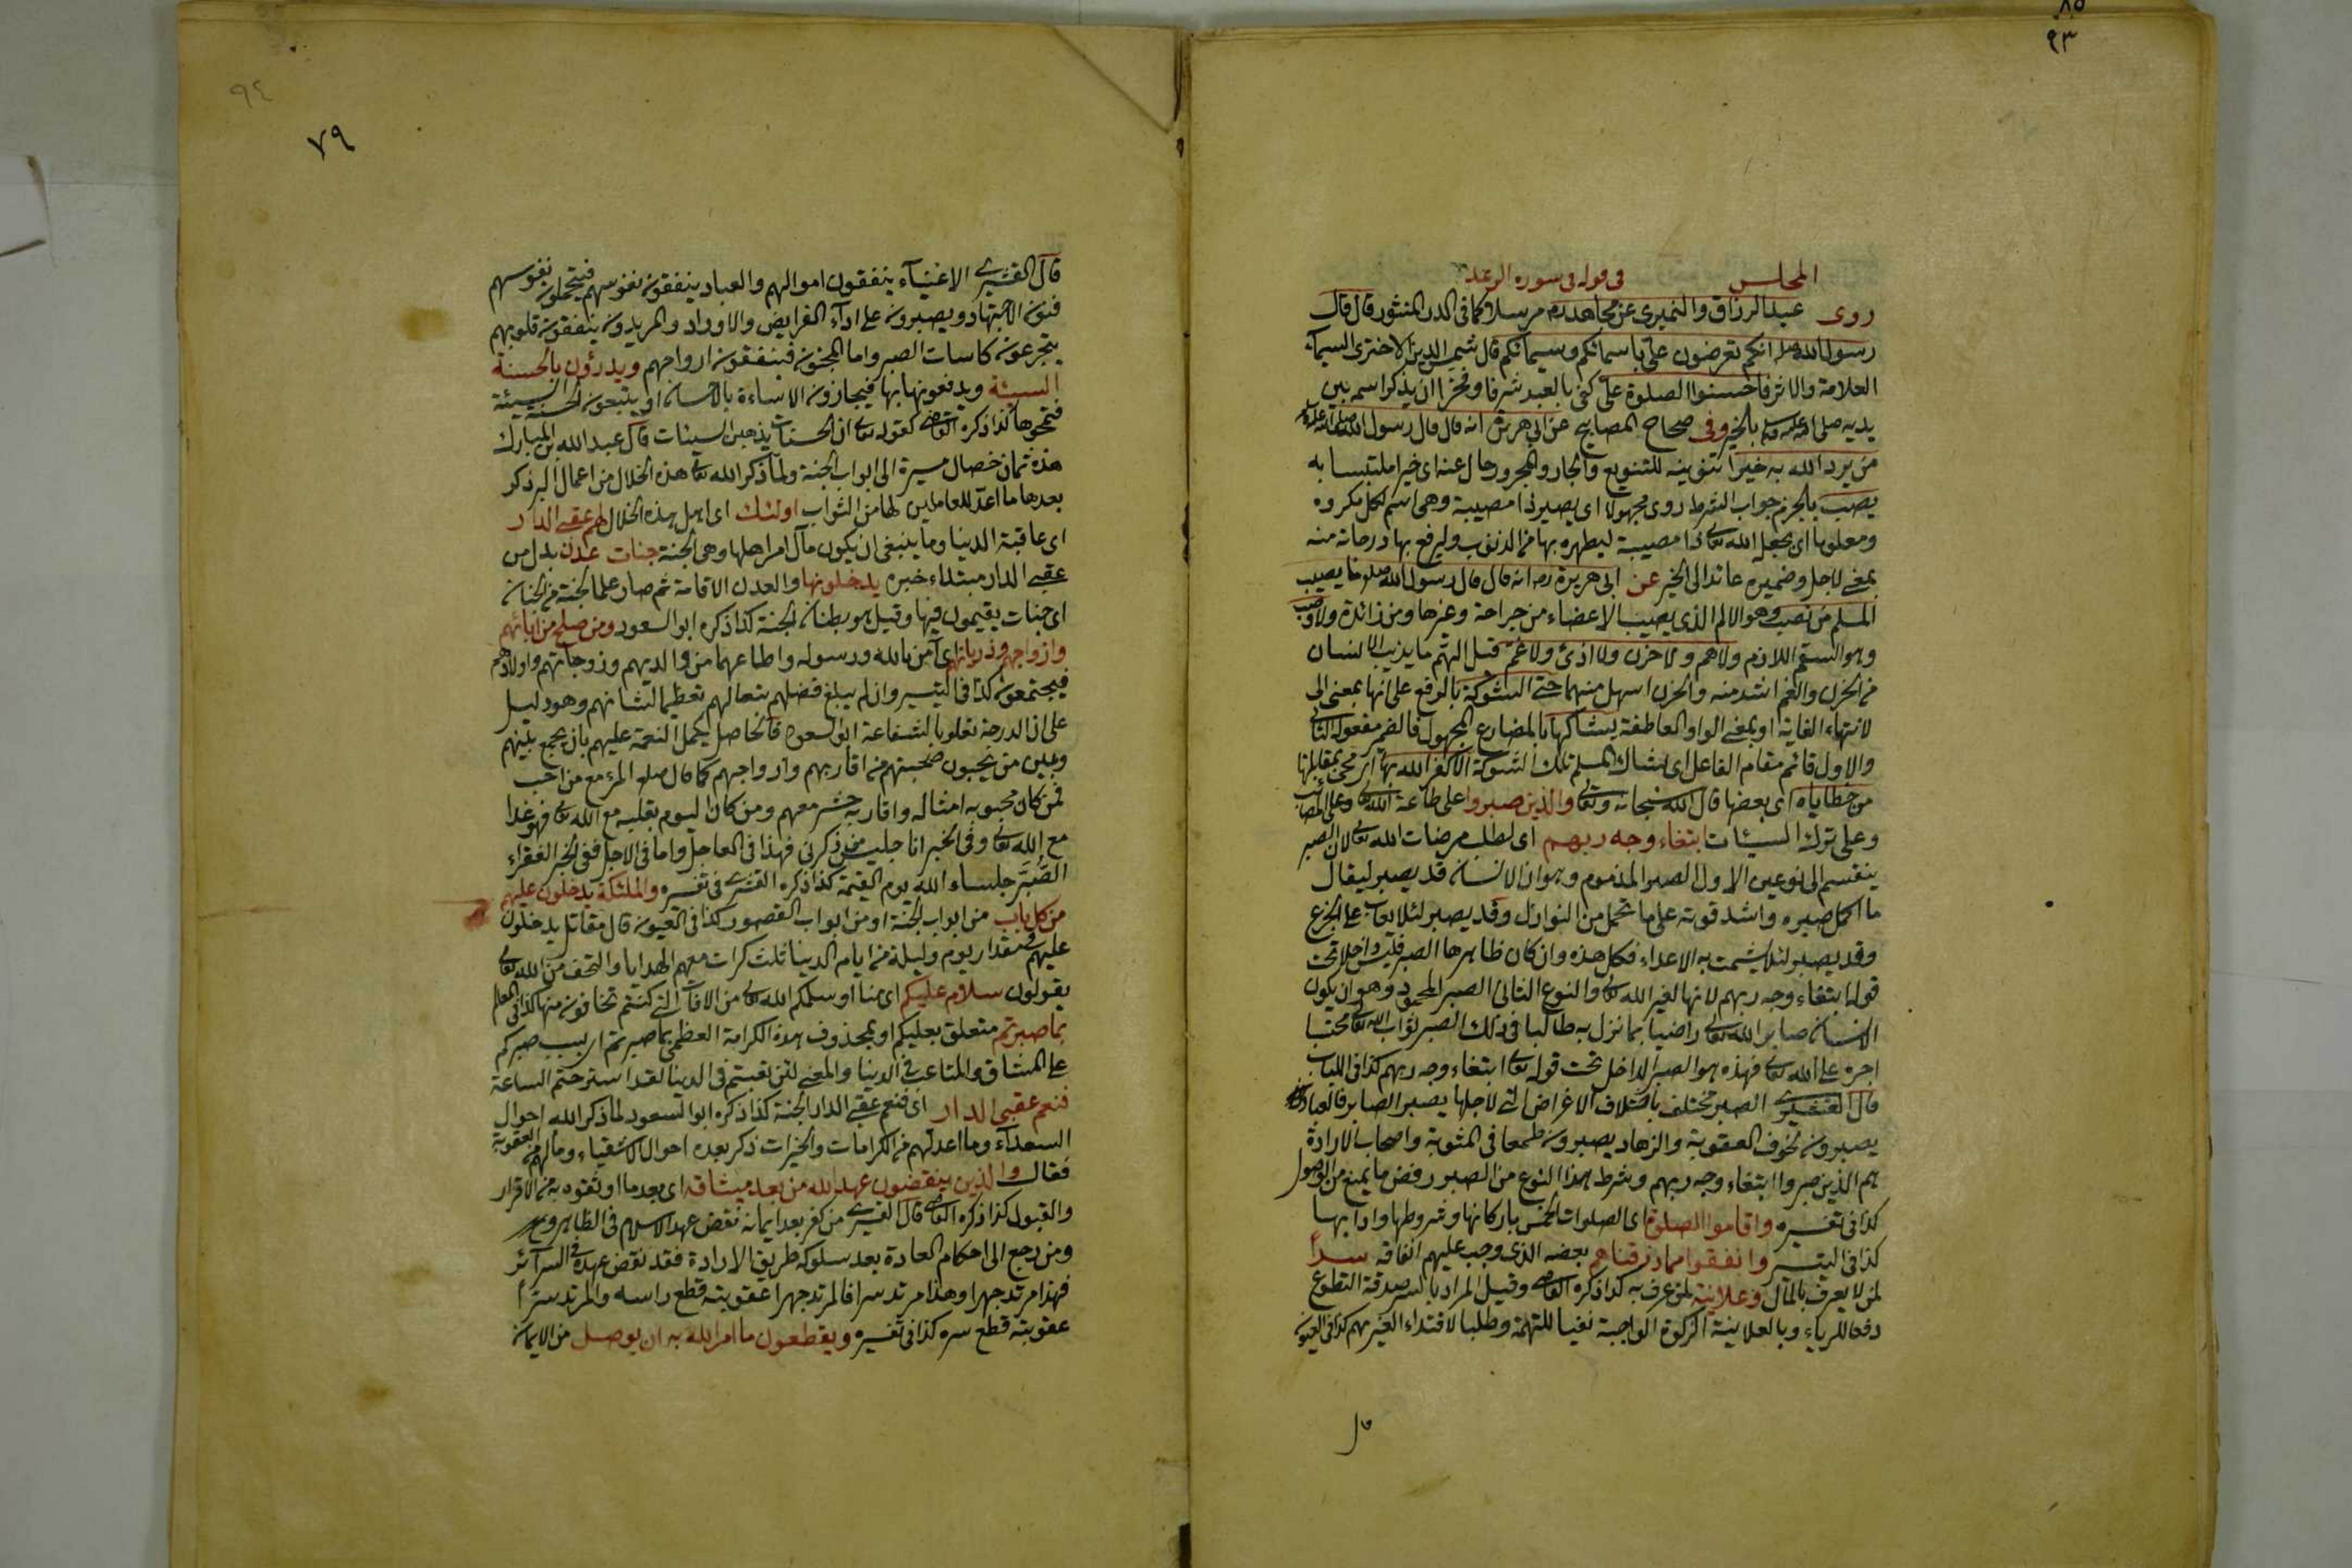 ٨٥
٩٣
المجلس في قوله في سورة الرعد
روى عبد الرزاق والنميرى عن مجاهد مرسلا كما في الدر المنثور قال قال
رسول الله انكم تعرضون على باسمائكم وسيمائكم قال السيماء
العلامة والاثر فاحسنوا الصلوة على كفى بالعبد شرفا وفخرا ان يذكر اسمه بين
يديه صلى الله عليه وسلم بالخير وفي صحاح المصابيح عن ابى هريرة انه قال قال رسول الله صلى الله عليه
من يرد الله به خيرا تنوينه للتنويع والجار والمجرور حال عنه اى خيرا ملتبسا به
يصب بالجزم جواب الشرط روى مجهولا اى يصير ذا مصيبة وهى اسم لكل مكروه
ومعلوما اى يجعل الله تعالى ذا مصيبة ليطهره بها من الذنوب وليرفع بها درجاته منه
بمعنى لاجل وضميره عائد الى الخير عن ابى هريرة رضه انه قال قال رسول الله صلعم ما يصيب
المسلم من نصب وهو الالم الذى يصيب الاعضاء من جراحة وغيرها ومن زائدة ولا وصب
وهو السقم اللازم ولا هم ولا حزن ولا اذى ولا غم قيل الهم ما يذيب الانسان
من الحزن والغم اشد منه والحزن اسهل منهما حتى الشوكة بالرفع على انها بمعنى الى
لانتهاء الغاية او بمعنى الواو العاطفة يشاكها بالمضارع المجهول فالضمير مفعوله الثانى
والاول قائم مقام الفاعل اى يشاك المسلم تلك الشوكة الا كفر الله بها اى محى بمقابلتها
من خطاياه اى بعضها قال الله سبحانه وتعالى والذين صبروا على طاعة الله تعالى وعلى المصائب
وعلى ترك السيئات ابتغاء وجه ربهم اى لطلب مرضات الله تعالى لان الصبر
ينقسم الى نوعين الاول الصبر المذموم وهو ان الانسان قد يصبر ليقال
ما اكمل صبره واشد قوته على ما تحمل من النوازل وقد يصبر لئلا يعاب على الجزع
وقد يصبر لئلا يشمت به الاعداء فكل هذه وان كان ظاهرها الصبر فليس داخلا تحت
قوله ابتغاء وجه ربهم لانها لغير الله تعالى والنوع الثانى الصبر المحمود وهو ان يكون
الانسان صابرا لله تعالى راضيا بما نزل به طالبا في ذلك الصبر ثواب الله تعالى محتسبا
اجره على الله تعالى فهذه هو الصبر الداخل تحت قوله تعالى ابتغاء وجه ربهم كذا في اللباب
قال القشيرى الصبر مختلف باختلاف الاغراض التى لاجلها يصبر الصابر فالعباد
يصبرون لخوف العقوبة والزهاد يصبرون طمعا في المثوبة واصحاب الارادة
هم الذين صبروا ابتغاء وجه ربهم وشرط هذا النوع من الصبر رفض ما يمنع من الوصول
كذا في تفسيره واقاموا الصلوة اى الصلوات الخمس باركانها وشروطها وادابها
كذا في التيسير وانفقوا مما رزقناهم بعضه الذى وجب عليهم انفاقه سرا
لمن لا يعرف بالمال وعلانية لمن عرف به كذا ذكره القاضى وقيل المراد بالسر صدقة التطوع
دفعا للرياء وبالعلانية الزكوة الواجبة نفيا للتهمة وطلبا لاقتداء الغير بهم كذا في العيون
قال
٩٤
٧٩
قال القشيرى الاغنياء ينفقون اموالهم والعباد ينفقون نفوسهم فيتحملون نفوسهم
فنون الاجتهاد ويصبرون على اداء الفرايض والاوراد والمريدون ينفقون قلوبهم
يتجرعون كاسات الصبر واما المحبون فينفقون ارواحهم ويدرؤن بالحسنة
السيئة ويدفعونها بها فيجازون الاساءة بالاحسان او يتبعون الحسنة السيئة
فتمحوها كذا ذكره القاضى كقوله تعالى ان الحسنات يذهبن السيئات قال عبد الله بن المبارك
هذه ثمان خصال مسيرة الى ابواب الجنة ولما ذكر الله تعالى هذه الخلال من اعمال البر ذكر
بعدها ما اعد للعاملين لها من الثواب اولئك اى اهل هذه الخلال لهم عقبى الدار
اى عاقبة الدنيا وما ينبغى ان يكون مآل امر اهلها وهى الجنة جنات عدن بدل من
عقبى الدار مبتداء خبره يدخلونها والعدن الاقامة ثم صار علما لجنة من الجنان
اى جنات يقيمون فيها وقيل هو بطنان الجنة كذا ذكره ابو السعود ومن صلح من ابائهم
وازواجهم وذرياتهم اى آمن بالله ورسوله واطاعهما من والديهم وزوجاتهم واولادهم
فيجتمعون كذا في التيسير وان لم يبلغ فضلهم تبعا لهم تعظيما لشانهم وهو دليل
على ان الدرجة تعلو بالشفاعة ابو السعود فالحاصل يكمل النعمة عليهم بان يجمع بينهم
وبين من يحبون صحبتهم من اقاربهم وازواجهم كما قال صلعم المرء مع من احب
فمن كان محبوبه امثاله واقاربه حشر معهم ومن كان اليوم بقلبه مع الله تعالى فهو غدا
مع الله تعالى وفي الخبر انا جليس من ذكرنى فهذا في العاجل واما في الاجل ففى الخبر الفقراء
الصبر جلساء الله يوم القيمة كذا ذكره القشيرى في تفسيره والملئكة يدخلون عليهم
من كل باب من ابواب الجنة او من ابواب القصور كذا في العيون قال مقاتل يدخلون
عليهم في مقدار يوم وليلة من ايام الدنيا ثلث كرات معهم الهدايا والتحف من الله تعالى
يقولون سلام عليكم اى منا او سلمكم الله تعالى من الافات التى كنتم تخافون منها كذا في المعالم
بما صبرتم متعلق بعليكم او بمحذوف هذه الكرامة العظمى بما صبرتم اى بسبب صبركم
على المشاق والمتاعب في الدنيا والمعنى لئن تعبتم في الدنيا لقد استرحتم الساعة
فنعم عقبى الدار اى فنعم عقبى الدار الجنة كذا ذكره ابو السعود لما ذكر الله احوال
السعداء وما اعد لهم من الكرامات والخيرات ذكر بعده احوال الاشقياء وما لهم من العقوبة
فقال والذين ينقضون عهد الله من بعد ميثاقه اى بعد ما اوثقوه به من الاقرار
والقبول كذا ذكره القاضى قال القشيرى من كفر بعد ايمانه نقض عهد الاسلام في الظاهر
ومن رجع الى احكام العادة بعد سلوكه طريق الارادة فقد نقض عهده في السرآئر
فهذا مرتد جهرا وهذا مرتد سرا فالمرتد جهرا عقوبته قطع راسه والمرتد سرا
عقوبته قطع سره كذا في تفسيره ويقطعون ما امر الله به ان يوصل من الايمان